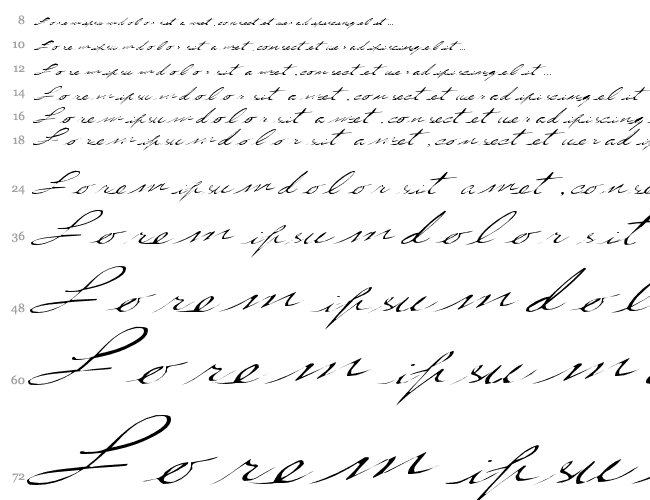 8 Lorem ipsum dolor sit amet, consectetuer adipiscing elit...
10 Lorem ipsum dolor sit amet, consectetuer adipiscing elit...
12 Lorem ipsum dolor sit amet, consectetuer adipiscing elit...
14 Lorem ipsum dolor sit amet, consectetuer adipiscing elit
16 Lorem ipsum dolor sit amet, consectetuer adipiscing
18 Lorem ipsum dolor sit amet, consectetuer adipi
24 Lorem ipsum dolor sit amet, conse
36 Lorem ipsum dolor sit
48 Lorem ipsum dol
60 Lorem ipsum
72 Lorem ipsu